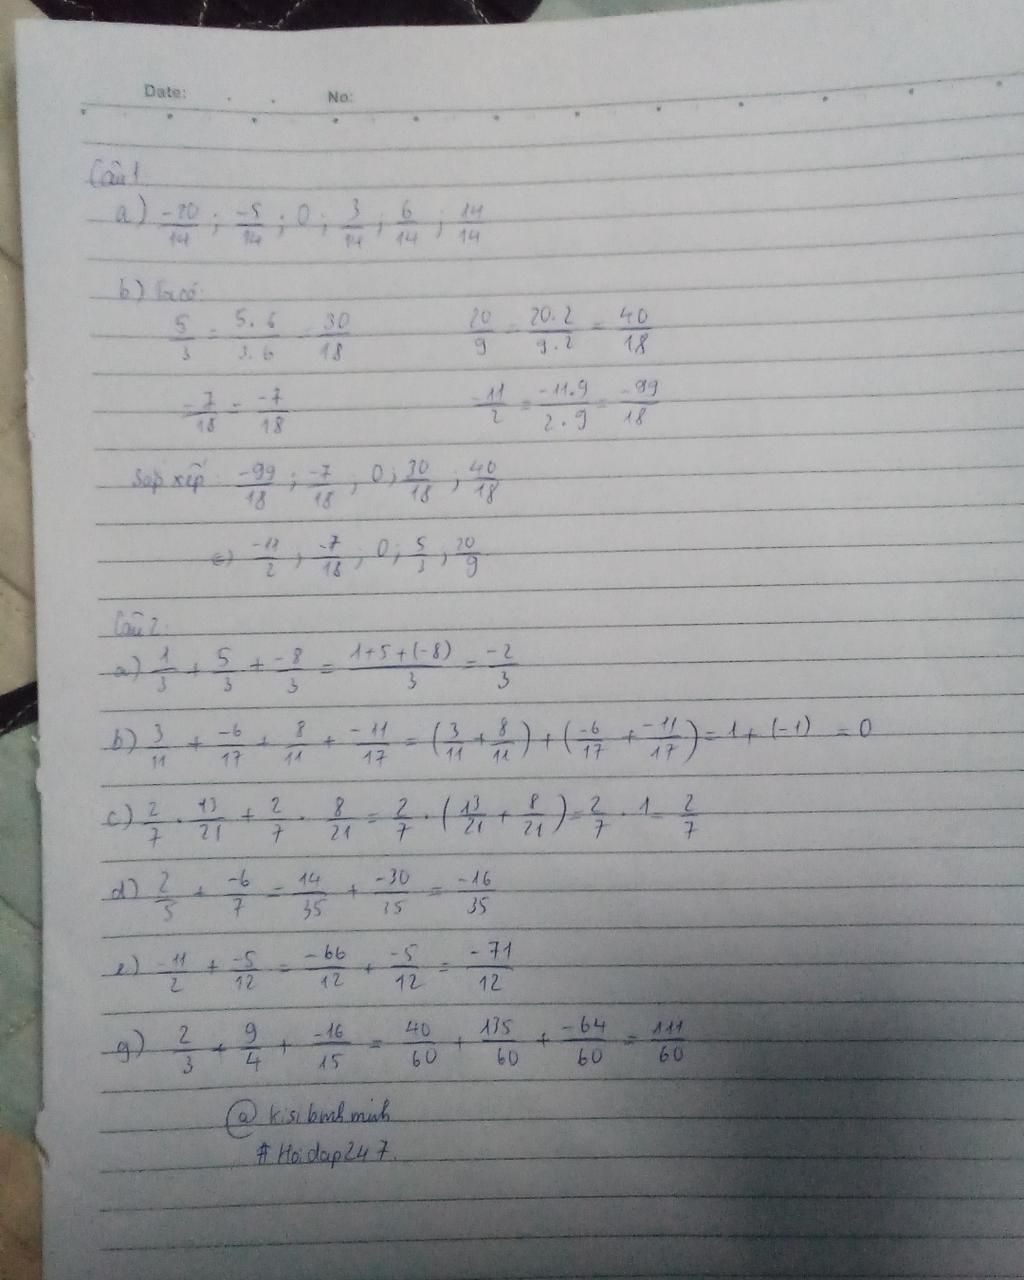 Date: No:
Câu 1
a) -20/14 ; -5/14 ; 0 ; 3/14 ; 6/14 ; 14/14
b) Ta có:
5/3 = 5.6/3.6 = 30/18 20/9 = 20.2/9.2 = 40/18
-7/18 = -7/18 -11/2 = -11.9/2.9 = -99/18
Sắp xếp: -99/18 ; -7/18 ; 0 ; 30/18 ; 40/18
-11/2 ; -7/18 ; 0 ; 5/3 ; 20/9
Câu 2:
a) 1/3 + 5/3 + -8/3 = 1+5+(-8)/3 = -2/3
b) 3/11 + -6/17 + 8/11 + -11/17 = (3/11 + 8/11) + (-6/17 + -11/17) = 1 + (-1) = 0
c) 2/7 . 13/21 + 2/7 . 8/21 = 2/7 . (13/21 + 8/21) = 2/7 . 1 = 2/7
d) 2/5 + -6/7 = 14/35 + -30/35 = -16/35
e) -11/2 + -5/12 = -66/12 + -5/12 = -71/12
g) 2/3 + 9/4 + -16/15 = 40/60 + 135/60 + -64/60 = 111/60
@kisibinhminh
#Hoidap247.